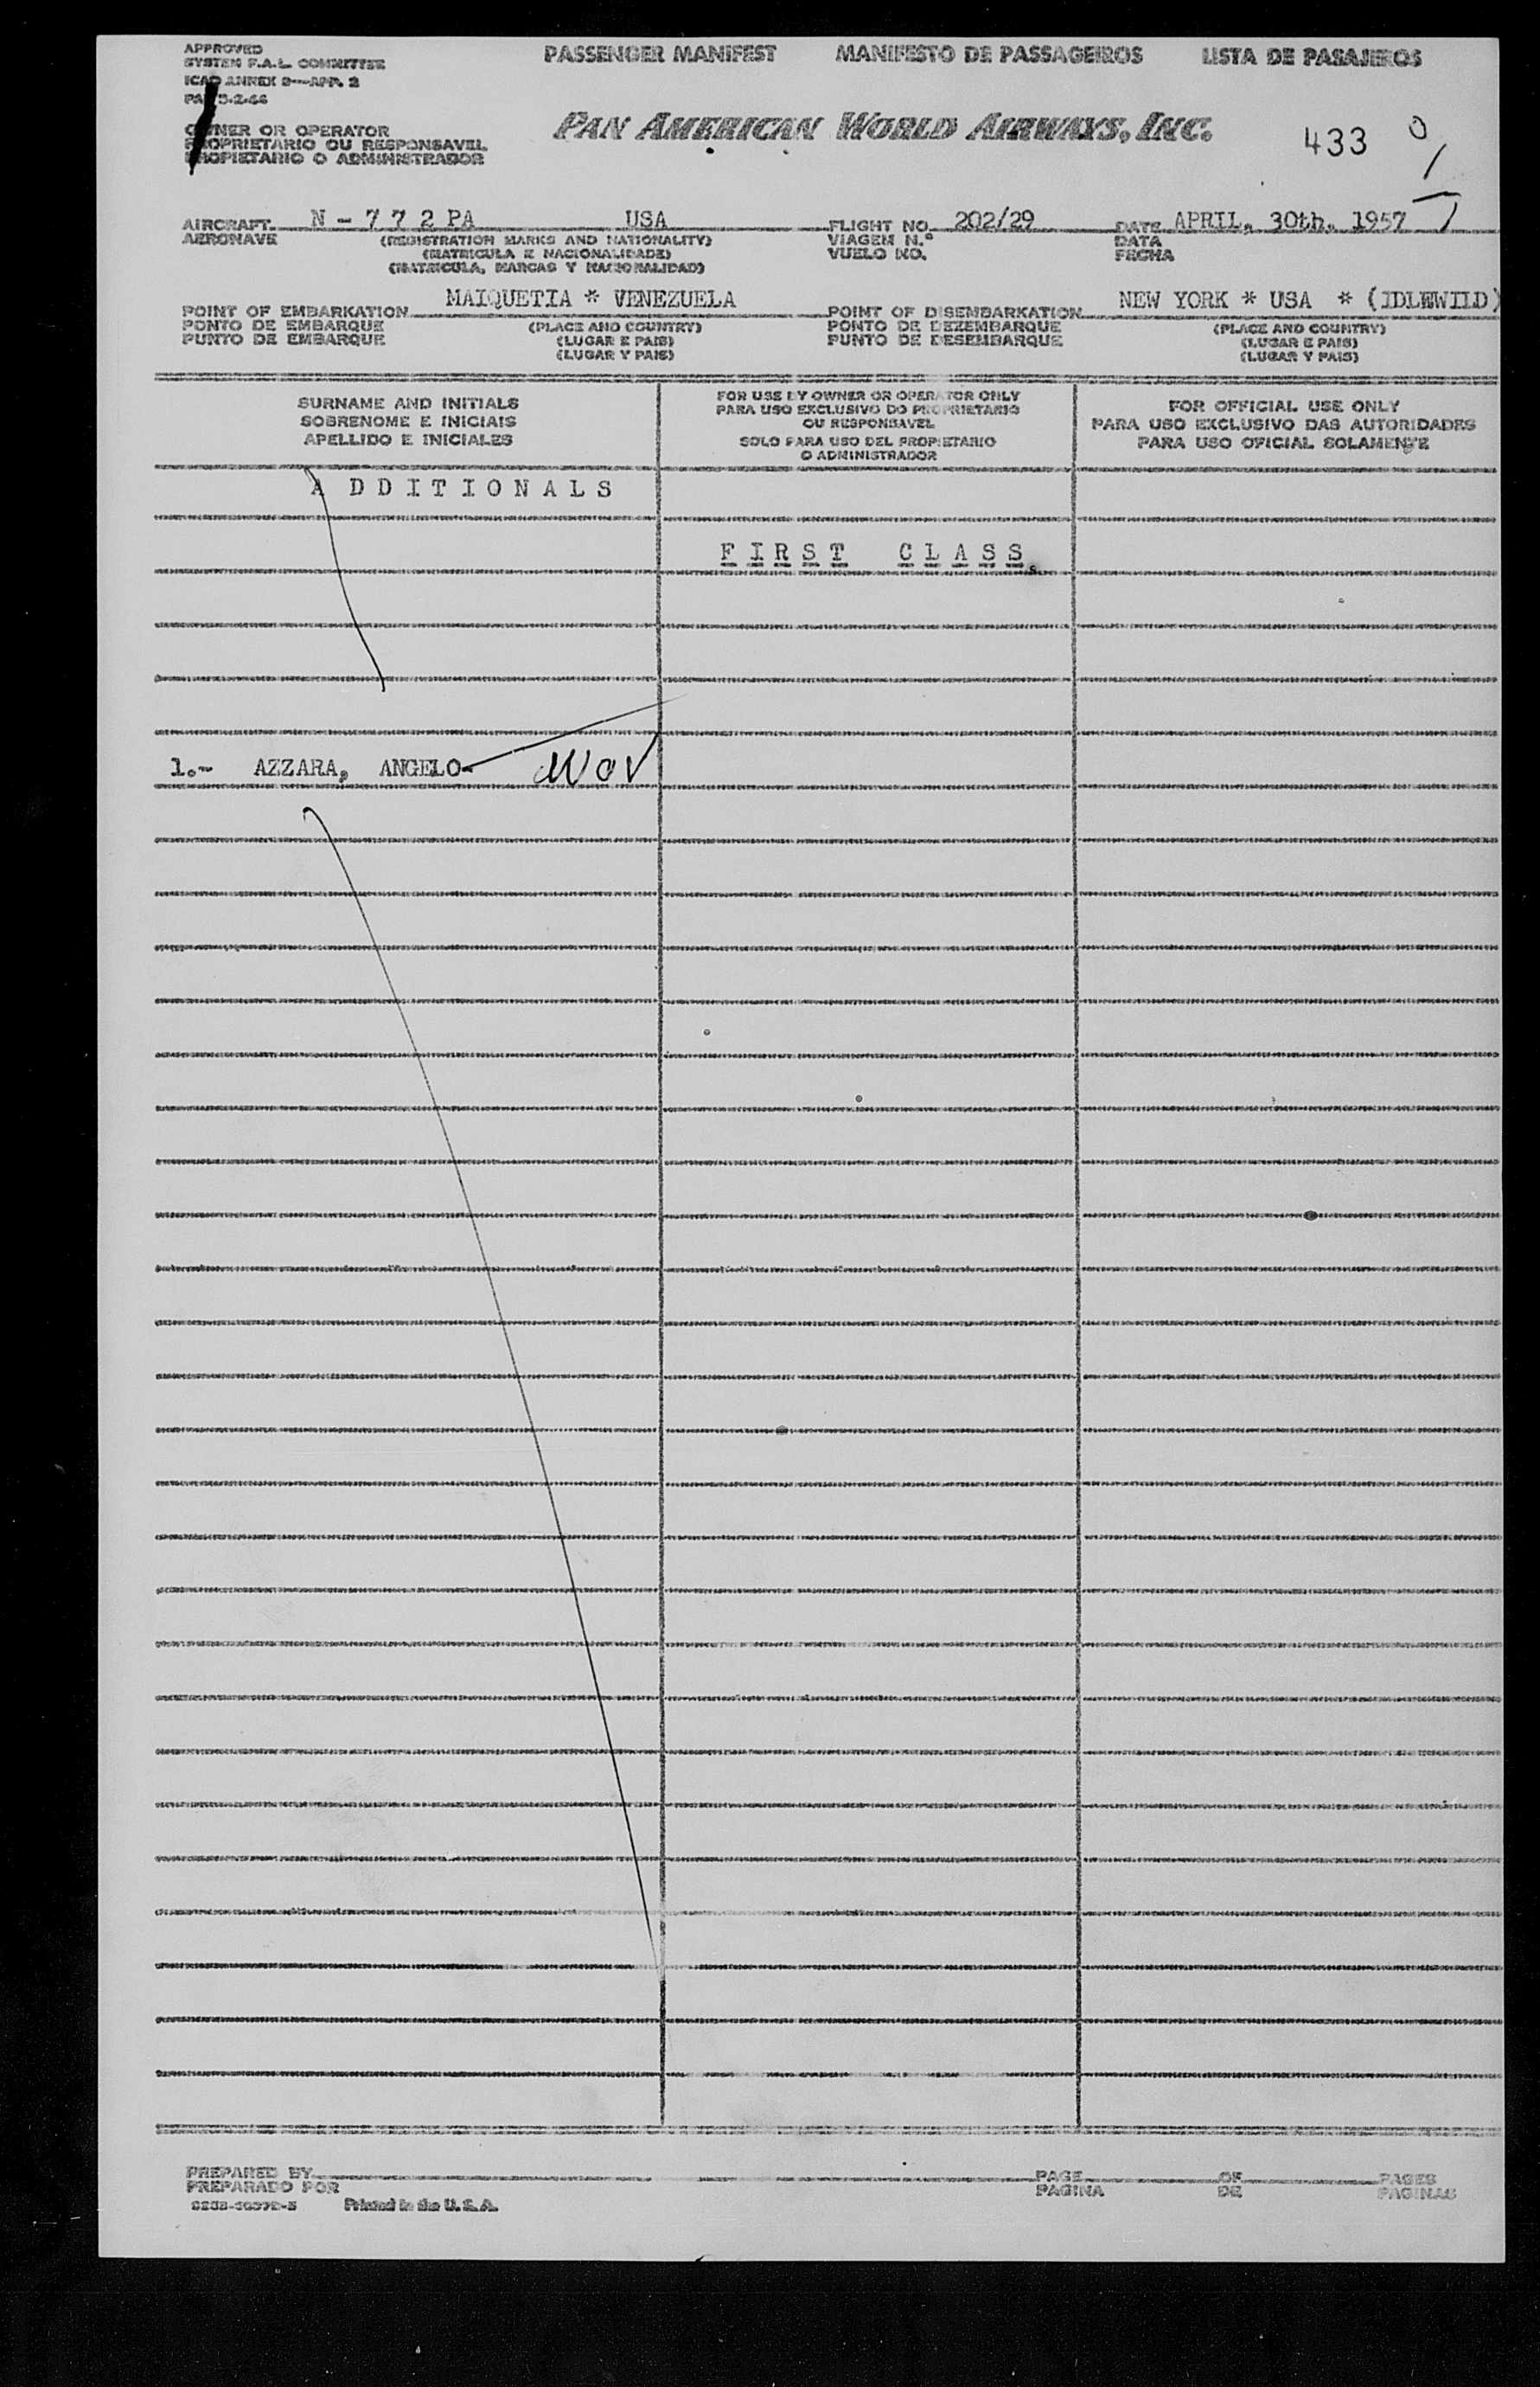 APPROVED
SYSTEM F.A.L. COMMITTEE
ICAO ANNEX 9—APP. 2
PASSENGER MANIFEST MANIFESTO DE PASSAGEIROS LISTA DE PASAJEROS
OWNER OR OPERATOR
PROPRIETARIO OU RESPONSAVEL
PROPIETARIO O ADMINISTRADOR
PAN AMERICAN WORLD AIRWAYS, INC.
433
AIRCRAFT N - 7 7 2 PA USA FLIGHT NO. 202/29 DATE APRIL, 30th. 1957
AERONAVE (REGISTRATION MARKS AND NATIONALITY) VIAGEM N.º DATA
(MATRICULA E NACIONALIDADE) VUELO NO. FECHA
(MATRICULA, MARCAS Y NACIONALIDAD)
POINT OF EMBARKATION MAIQUETIA * VENEZUELA POINT OF DISEMBARKATION NEW YORK * USA * (IDLEWILD)
PONTO DE EMBARQUE (PLACE AND COUNTRY) PONTO DE DEZEMBARQUE (PLACE AND COUNTRY)
PUNTO DE EMBARQUE (LUGAR E PAIS) PUNTO DE DESEMBARQUE (LUGAR E PAIS)
(LUGAR Y PAIS) (LUGAR Y PAIS)
SURNAME AND INITIALS
SOBRENOME E INICIAIS
APELLIDO E INICIALES
FOR USE BY OWNER OR OPERATOR ONLY
PARA USO EXCLUSIVO DO PROPRIETARIO
OU RESPONSAVEL
SOLO PARA USO DEL PROPIETARIO
O ADMINISTRADOR
FOR OFFICIAL USE ONLY
PARA USO EXCLUSIVO DAS AUTORIDADES
PARA USO OFICIAL SOLAMENTE
A D D I T I O N A L S
F I R S T C L A S S
1.- AZZARA, ANGELO-
PREPARED BY PAGE OF PAGES
PREPARADO POR PAGINA DE PAGINAS
Printed in the U. S. A.